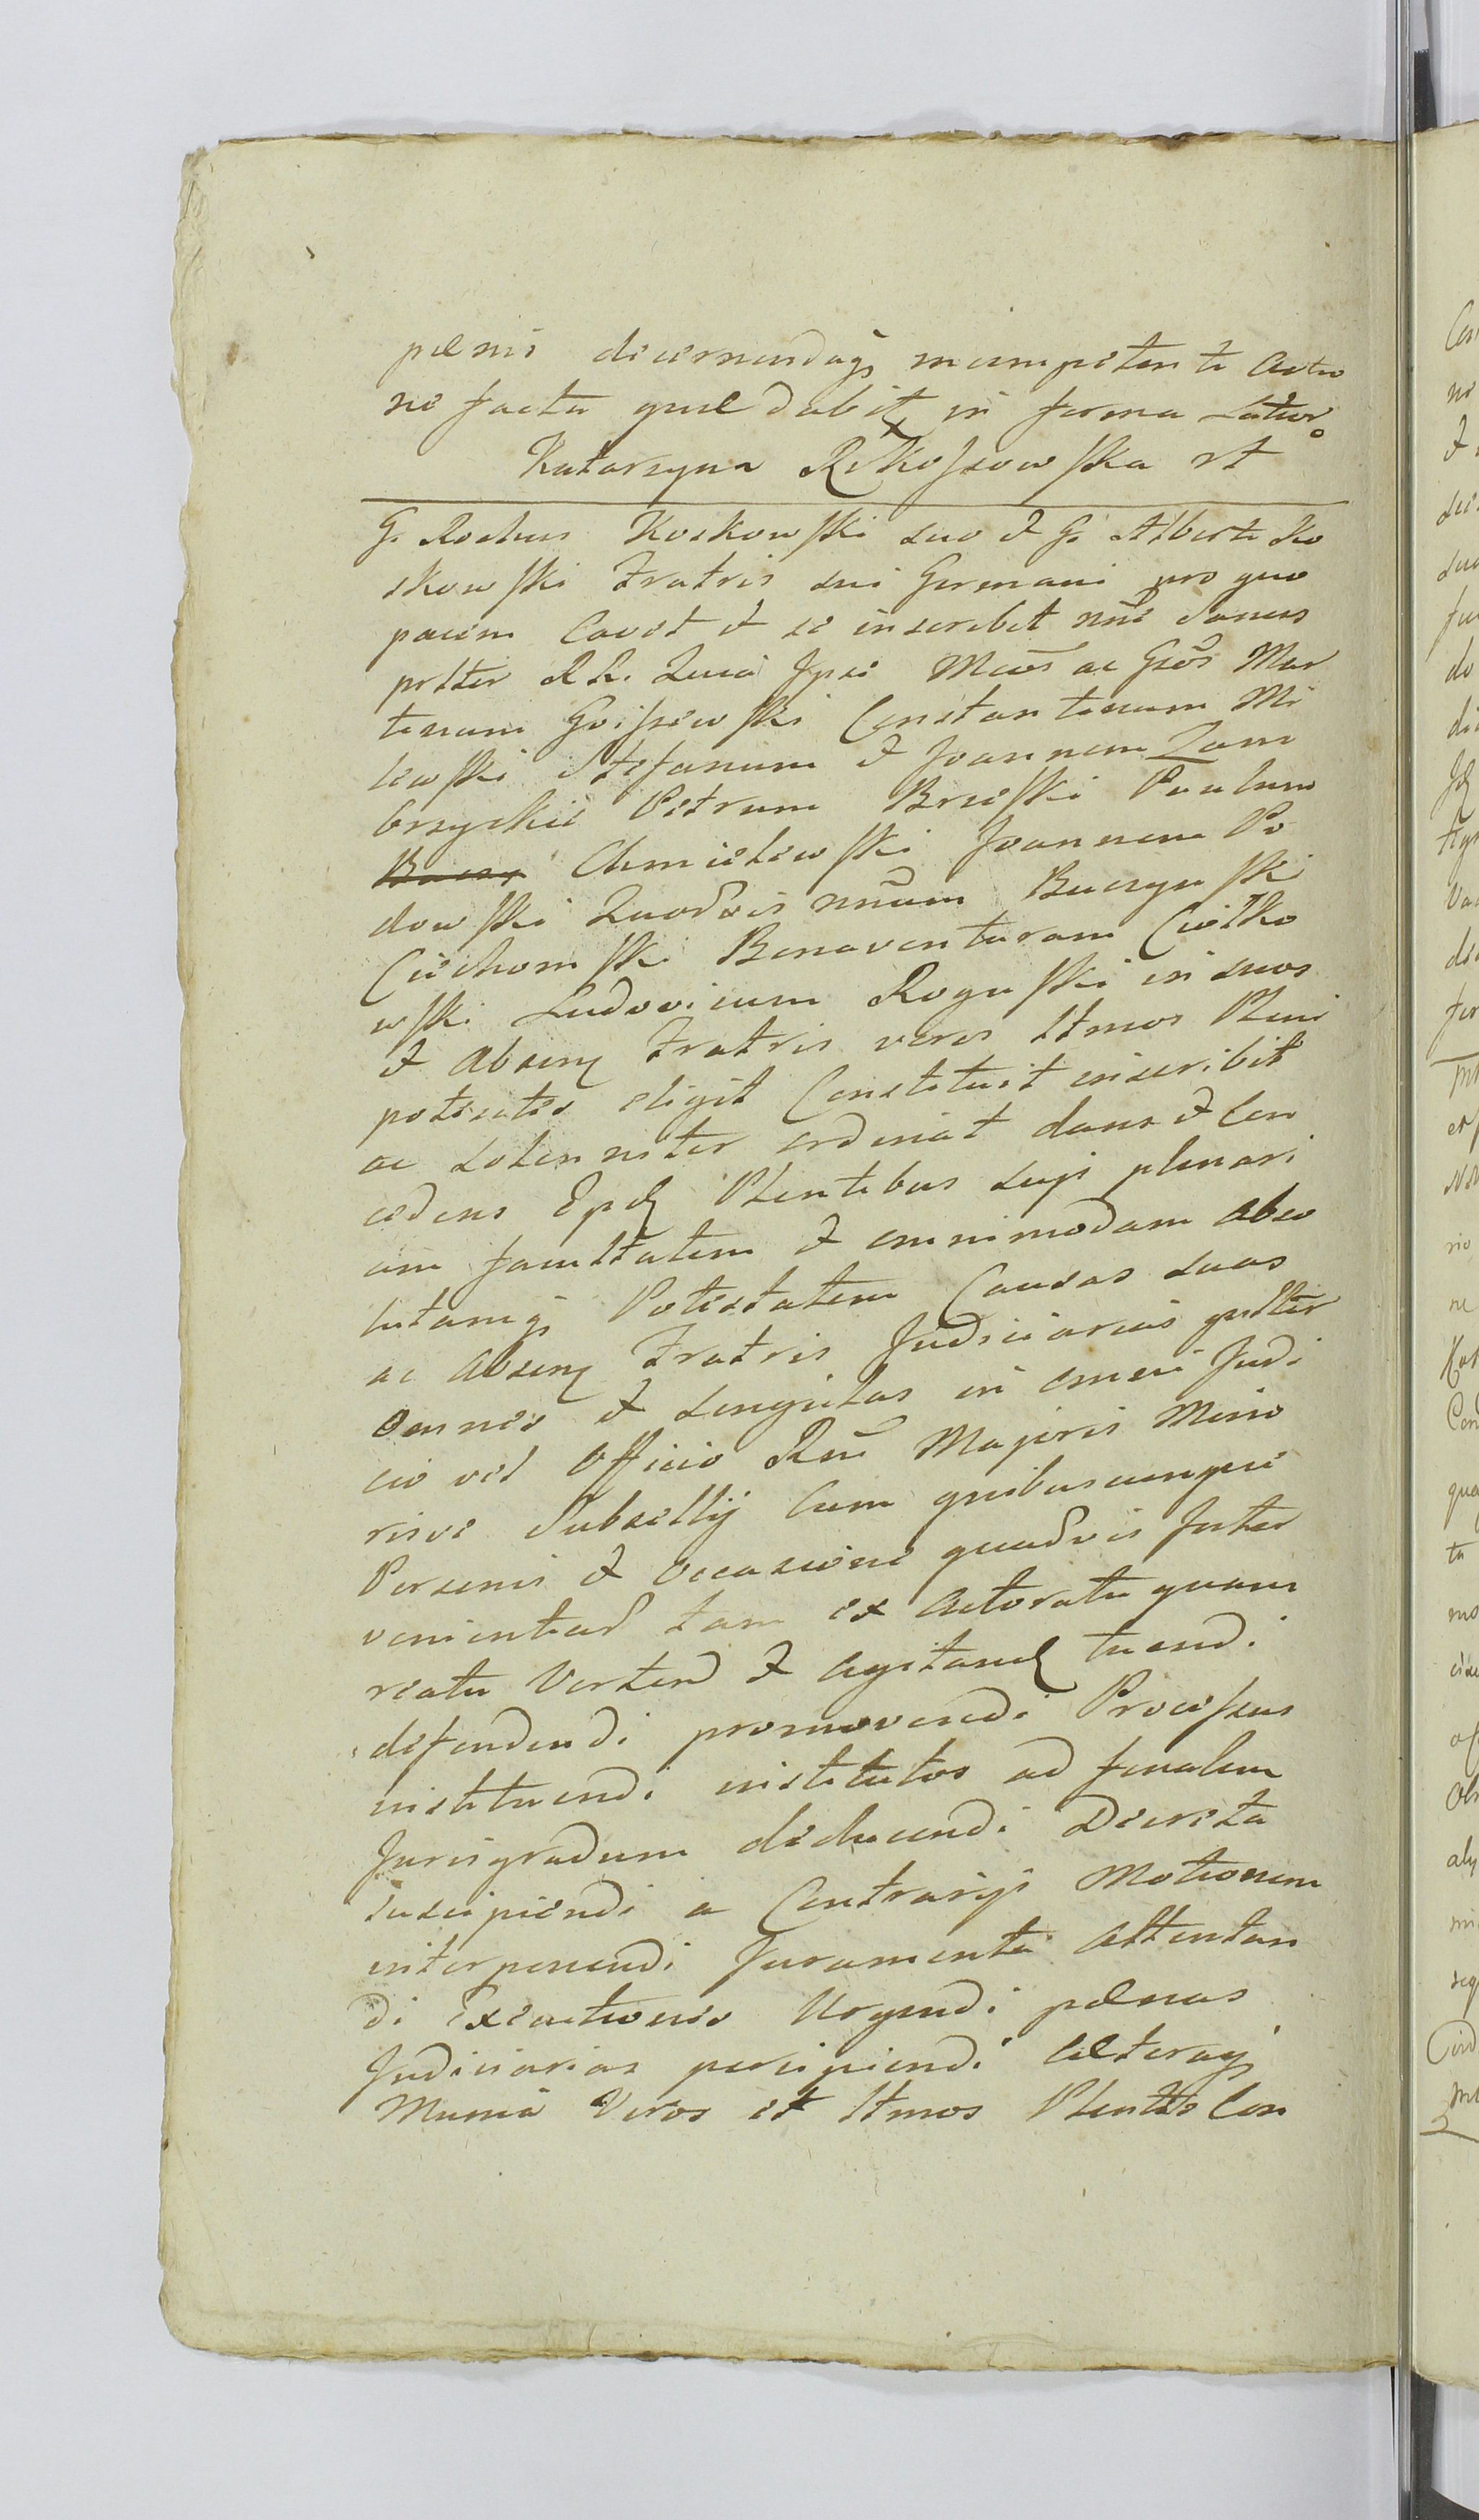 pænis decernendaqs incompetenti Actio
ne facta quæ dabit in forma Latior
Katarzyna Rokossowska rt
G. Rochus Koskowski suo & G. Alberti Ko
skowski Fratris sui Germani pro quo
pacem Cavet & se inscribit nñe Sanus
prltter RR. Quia Ipse Mcōs ac Gsōs Mar
tinum Goissewski Constantinum Mi
lewski Stefanum & Joannem Zam
brzyckie Petrum Brzeski Paulum
Buczy Chmielewski Joannem Po
dowski Quodvis nñum Buczynski
Ciechomski Bonaventuram Ciołko
wski Ludovicum Roguski in suos
& Absenq Fratris veros ltmos Pleni
potentes eligit Constituit inscribit
ac solenniter ordinat dans & Con
cedens Epdq Plentibus suys plenari
am facultatem & omnimodam abso
lutamqs Potestatem Causas suas
ac Absenq Fratris Judiciarias gnltter
Omnes & singulas in omni Judi
cio vel Officio Rñi Majoris Mino
risve Subsellij Cum quibuscunque
Personis & occasione quadvis Juter
venientiad tam ex Actoratu quam
reatu Vertend & Agitand tuendi
defendendi promovendi Processus
instituendi institutos ad finalem
Jurisgradum deducendi Decreta
suscipiendi a Contrarys Motionem
interponendi Juramenta Attentan
di Executiones Urgendi pænas
Judiciarias percipiendi Cæteraqs
Munia Veros et ltmos Plentes Con